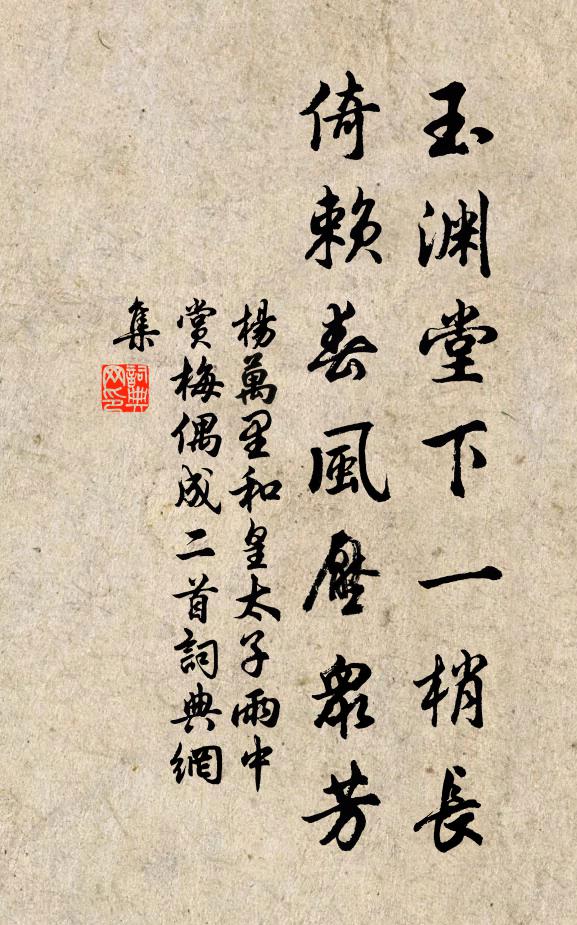 玉淵堂下一梢長
倚賴春風壓眾芳
楊萬里和皇太子雨中
賞梅偶成二首詞典網
集
詞典
网印